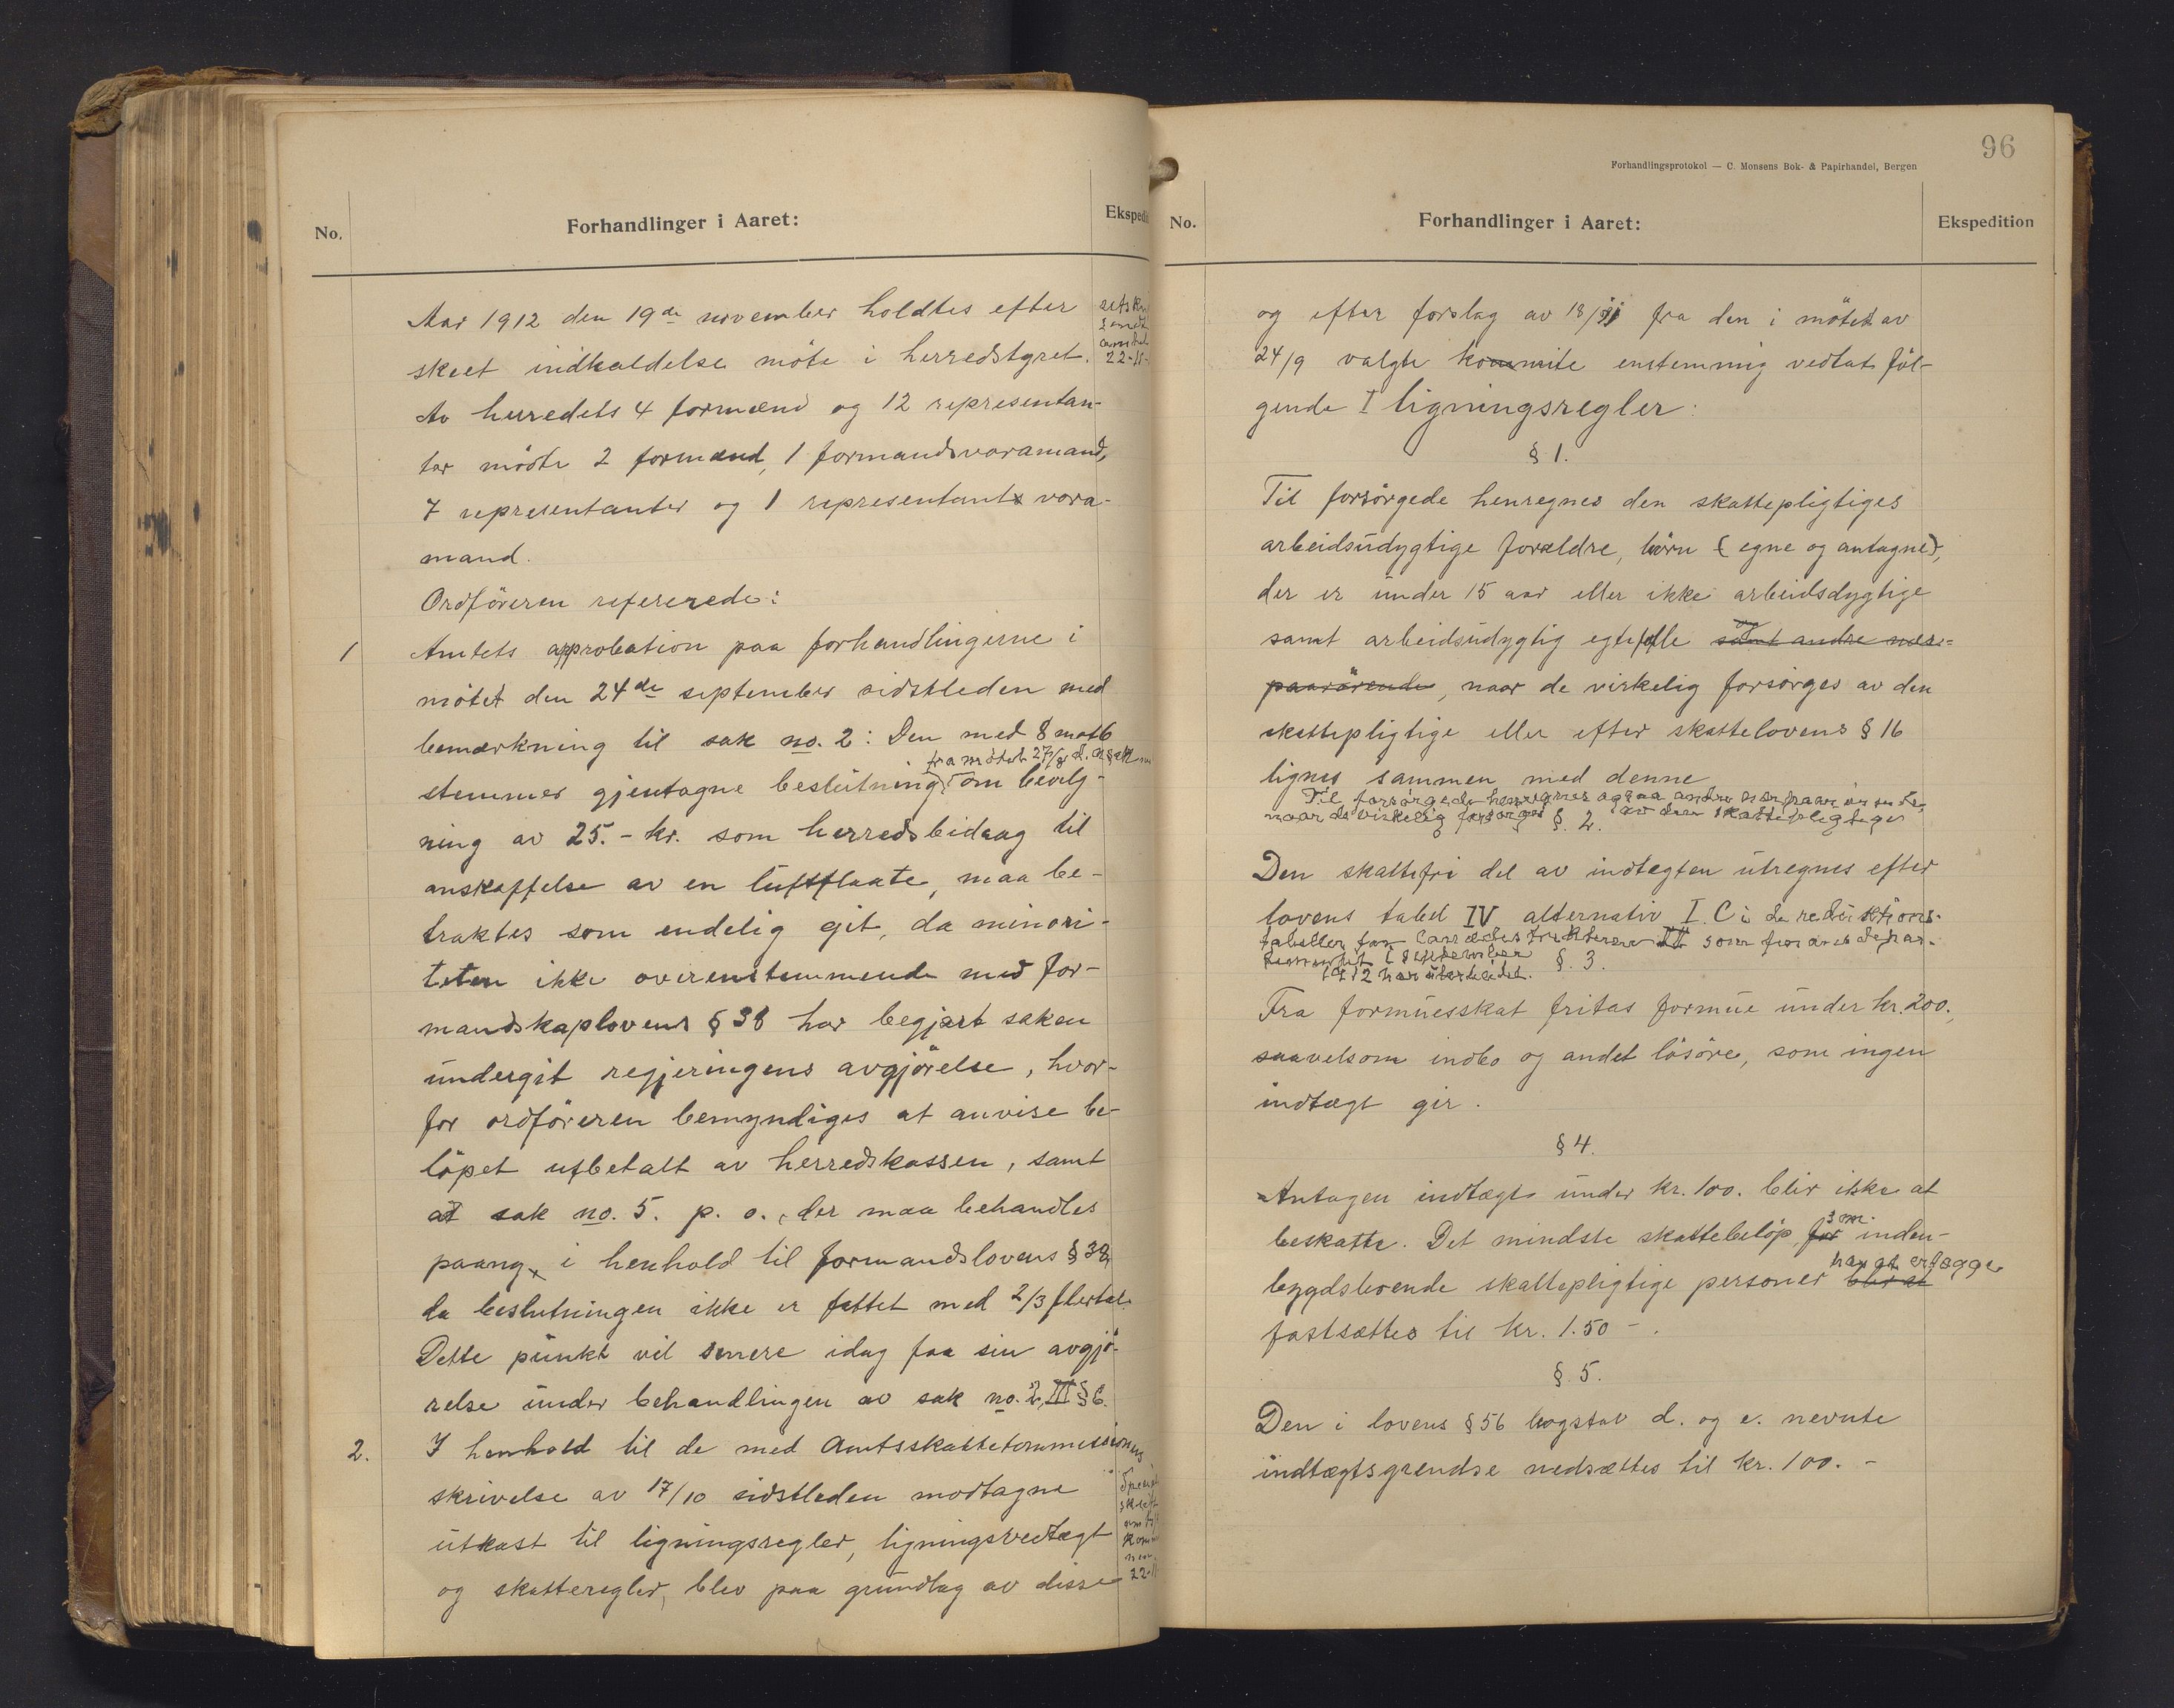 No.
Forhandlinger i Aaret:
Ekspedi
Aar 1912 den 19de november holdtes efter
skeet indkaldelse möte i herredstyret.
Av herredets 4 formænd og 12 representan-
ter mödte 2 formænd, 1 formandsvaramand,
7 representanter og 1 representants vara-
mand.
Ordföreren refererede:
1
Amtets approbation paa forhandlingerne i
mötet den 24de september sidstleden med
bemærkning til sak no. 2: Den med 8 mot 6
fra mötet 27/8 d. a.
stemmer gjentagne beslutning om bevilg-
ning av 25.- kr. som herredsbidrag til
anskaffelse av en luftflaate, maa be-
traktes som endelig git, da minori-
teten ikke overenstemmende med for-
mandskaplovens § 38 har begjært saken
undergit regjeringens avgjörelse, hvor-
for ordföreren bemyndiges at anvise be-
löpet utbetalt av herredskassen, samt
at sak no. 5. p. o., der maa behandles
paany, i henhold til formandslovens § 38,
da beslutningen ikke er fattet med 2/3 flertal.
Dette punkt vil senere idag faa sin avgjö-
relse under behandlingen av sak no. 2, III § 6.
2.
I henhold til de med Amtsskattekommissionens
skrivelse av 17/10 sidstleden modtagne
utkast til ligningsregler, ligningsvedtægt
og skatteregler, blev paa grundlag av disse
22-11
96
Forhandlingsprotokol — C. Monsens Bok- & Papirhandel, Bergen
No.
Forhandlinger i Aaret:
Ekspedition
og efter forslag av 18/11 fra den i mötet av
24/9 valgte kommite enstemmig vedtat föl-
gende I ligningsregler:
§ 1.
Til forsörgede henregnes den skattepligtiges
arbeidsudygtige forældre, börn (egne og antagne),
der er under 15 aar eller ikke arbeidsdygtige
og
samt arbeidsudygtig egtefelle samt andre nær-
paarörende, naar de virkelig forsörges av den
skattepligtige eller efter skattelovens § 16
lignes sammen med denne
Til forsörgede henregnes ogsaa andre nærpaarörende,
naar de virkelig forsörges av den skattepligtige
§. 2.
Den skattefri del av indtægten utregnes efter
lovens tabel IV alternativ I. C i de reduktions-
tabeller for landdistrikterne som finansdepar-
tementet i september
1912 har utarbeidet.
§. 3.
Fra formuesskat fritas formue under kr. 200.,
saavelsom indbo og andet lösöre, som ingen
indtægt gir.
§ 4.
Antagen indtægt under kr. 100. blir ikke at
beskatte. Det mindste skattebelöp, for som inden-
bygdsboende skattepligtige personer blir at har at erlægge
fastsættes til kr. 1.50 -.
§. 5.
Den i lovens § 56 bogstav d. og e. nevnte
indtægtsgrendse nedsættes til kr. 100. -